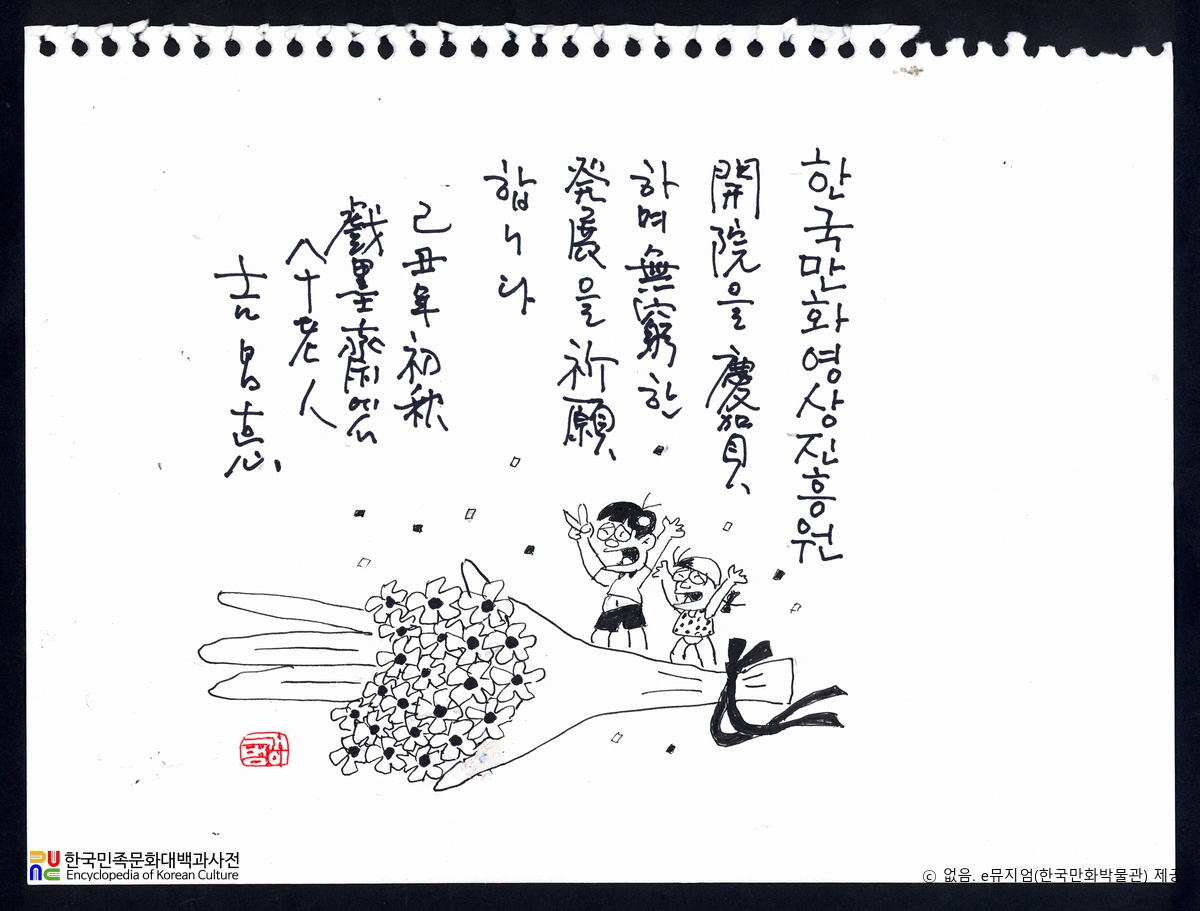 한국만화영상진흥원
開院을 慶賀
하며 無窮한
発展을 祈願
합니다
己丑年 初秋
戲墨齋에서
八十老人
吉昌悳
한국민족문화대백과사전
Encyclopedia of Korean Culture
© 없음. e뮤지엄(한국만화박물관) 제공